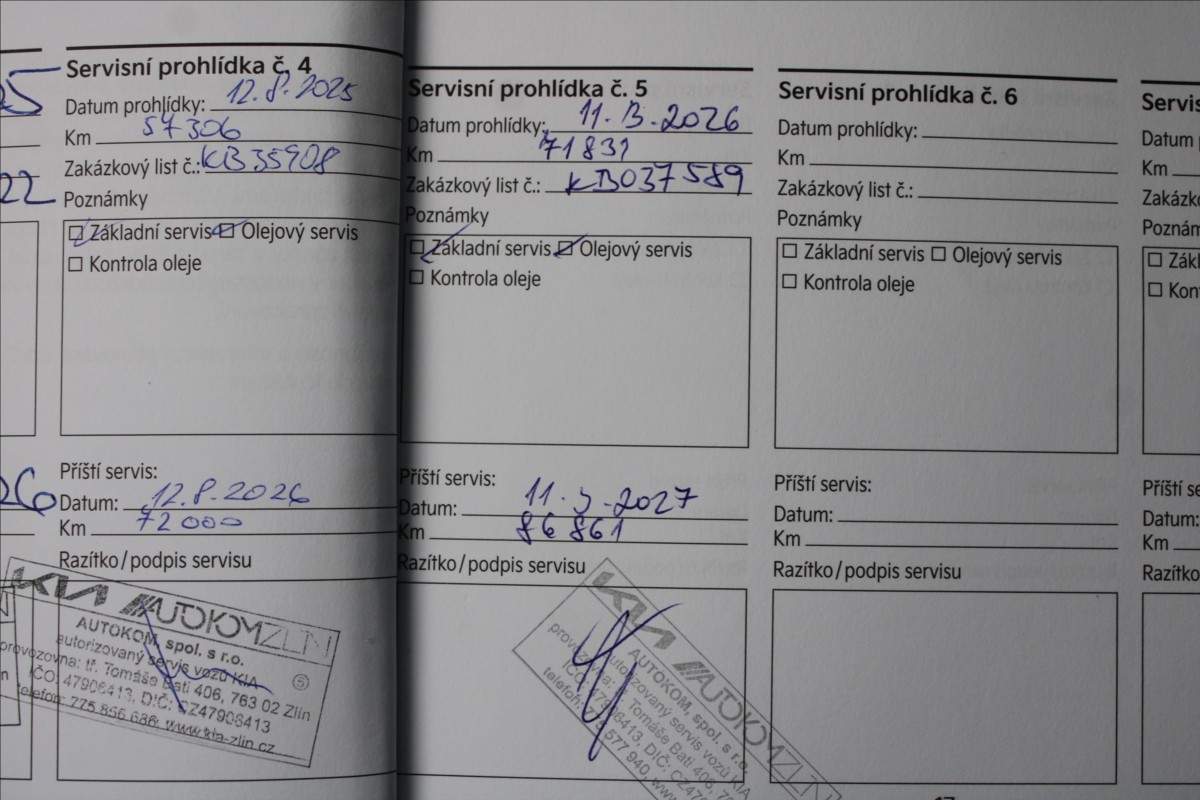 Servisní prohlídka č. 4
Datum prohlídky: 12.8.2025
Km 57306
Zakázkový list č.: KB35908
22
Poznámky
Základní servis Olejový servis
Kontrola oleje
26
Příští servis:
Datum: 12.8.2026
Km 72000
Razítko/podpis servisu
KIA AUTOKOMZLIN
AUTOKOM, spol. s r.o.
autorizovaný servis vozů KIA
provozovna: tř. Tomáše Bati 406, 763 02 Zlín
IČO: 47906413, DIČ: CZ47906413
telefon: 775 856 686, www.kia-zlin.cz
Servisní prohlídka č. 5
Datum prohlídky: 11.3.2026
Km 71831
Zakázkový list č.: KB037589
Poznámky
Základní servis Olejový servis
Kontrola oleje
Příští servis:
Datum: 11.3.2027
Km 86861
Razítko/podpis servisu
KIA AUTOKOMZLIN
AUTOKOM, spol. s r.o.
autorizovaný servis vozů KIA
provozovna: tř. Tomáše Bati 406, 7
IČO: 47906413, DIČ: CZ479
telefon: 775 577 940, www
Servisní prohlídka č. 6
Datum prohlídky:
Km
Zakázkový list č.:
Poznámky
Základní servis Olejový servis
Kontrola oleje
Příští servis:
Datum:
Km
Razítko/podpis servisu
Servis
Datum
Km
Zakázk
Poznám
Zákl
Kon
Příští se
Datum:
Km
Razítko